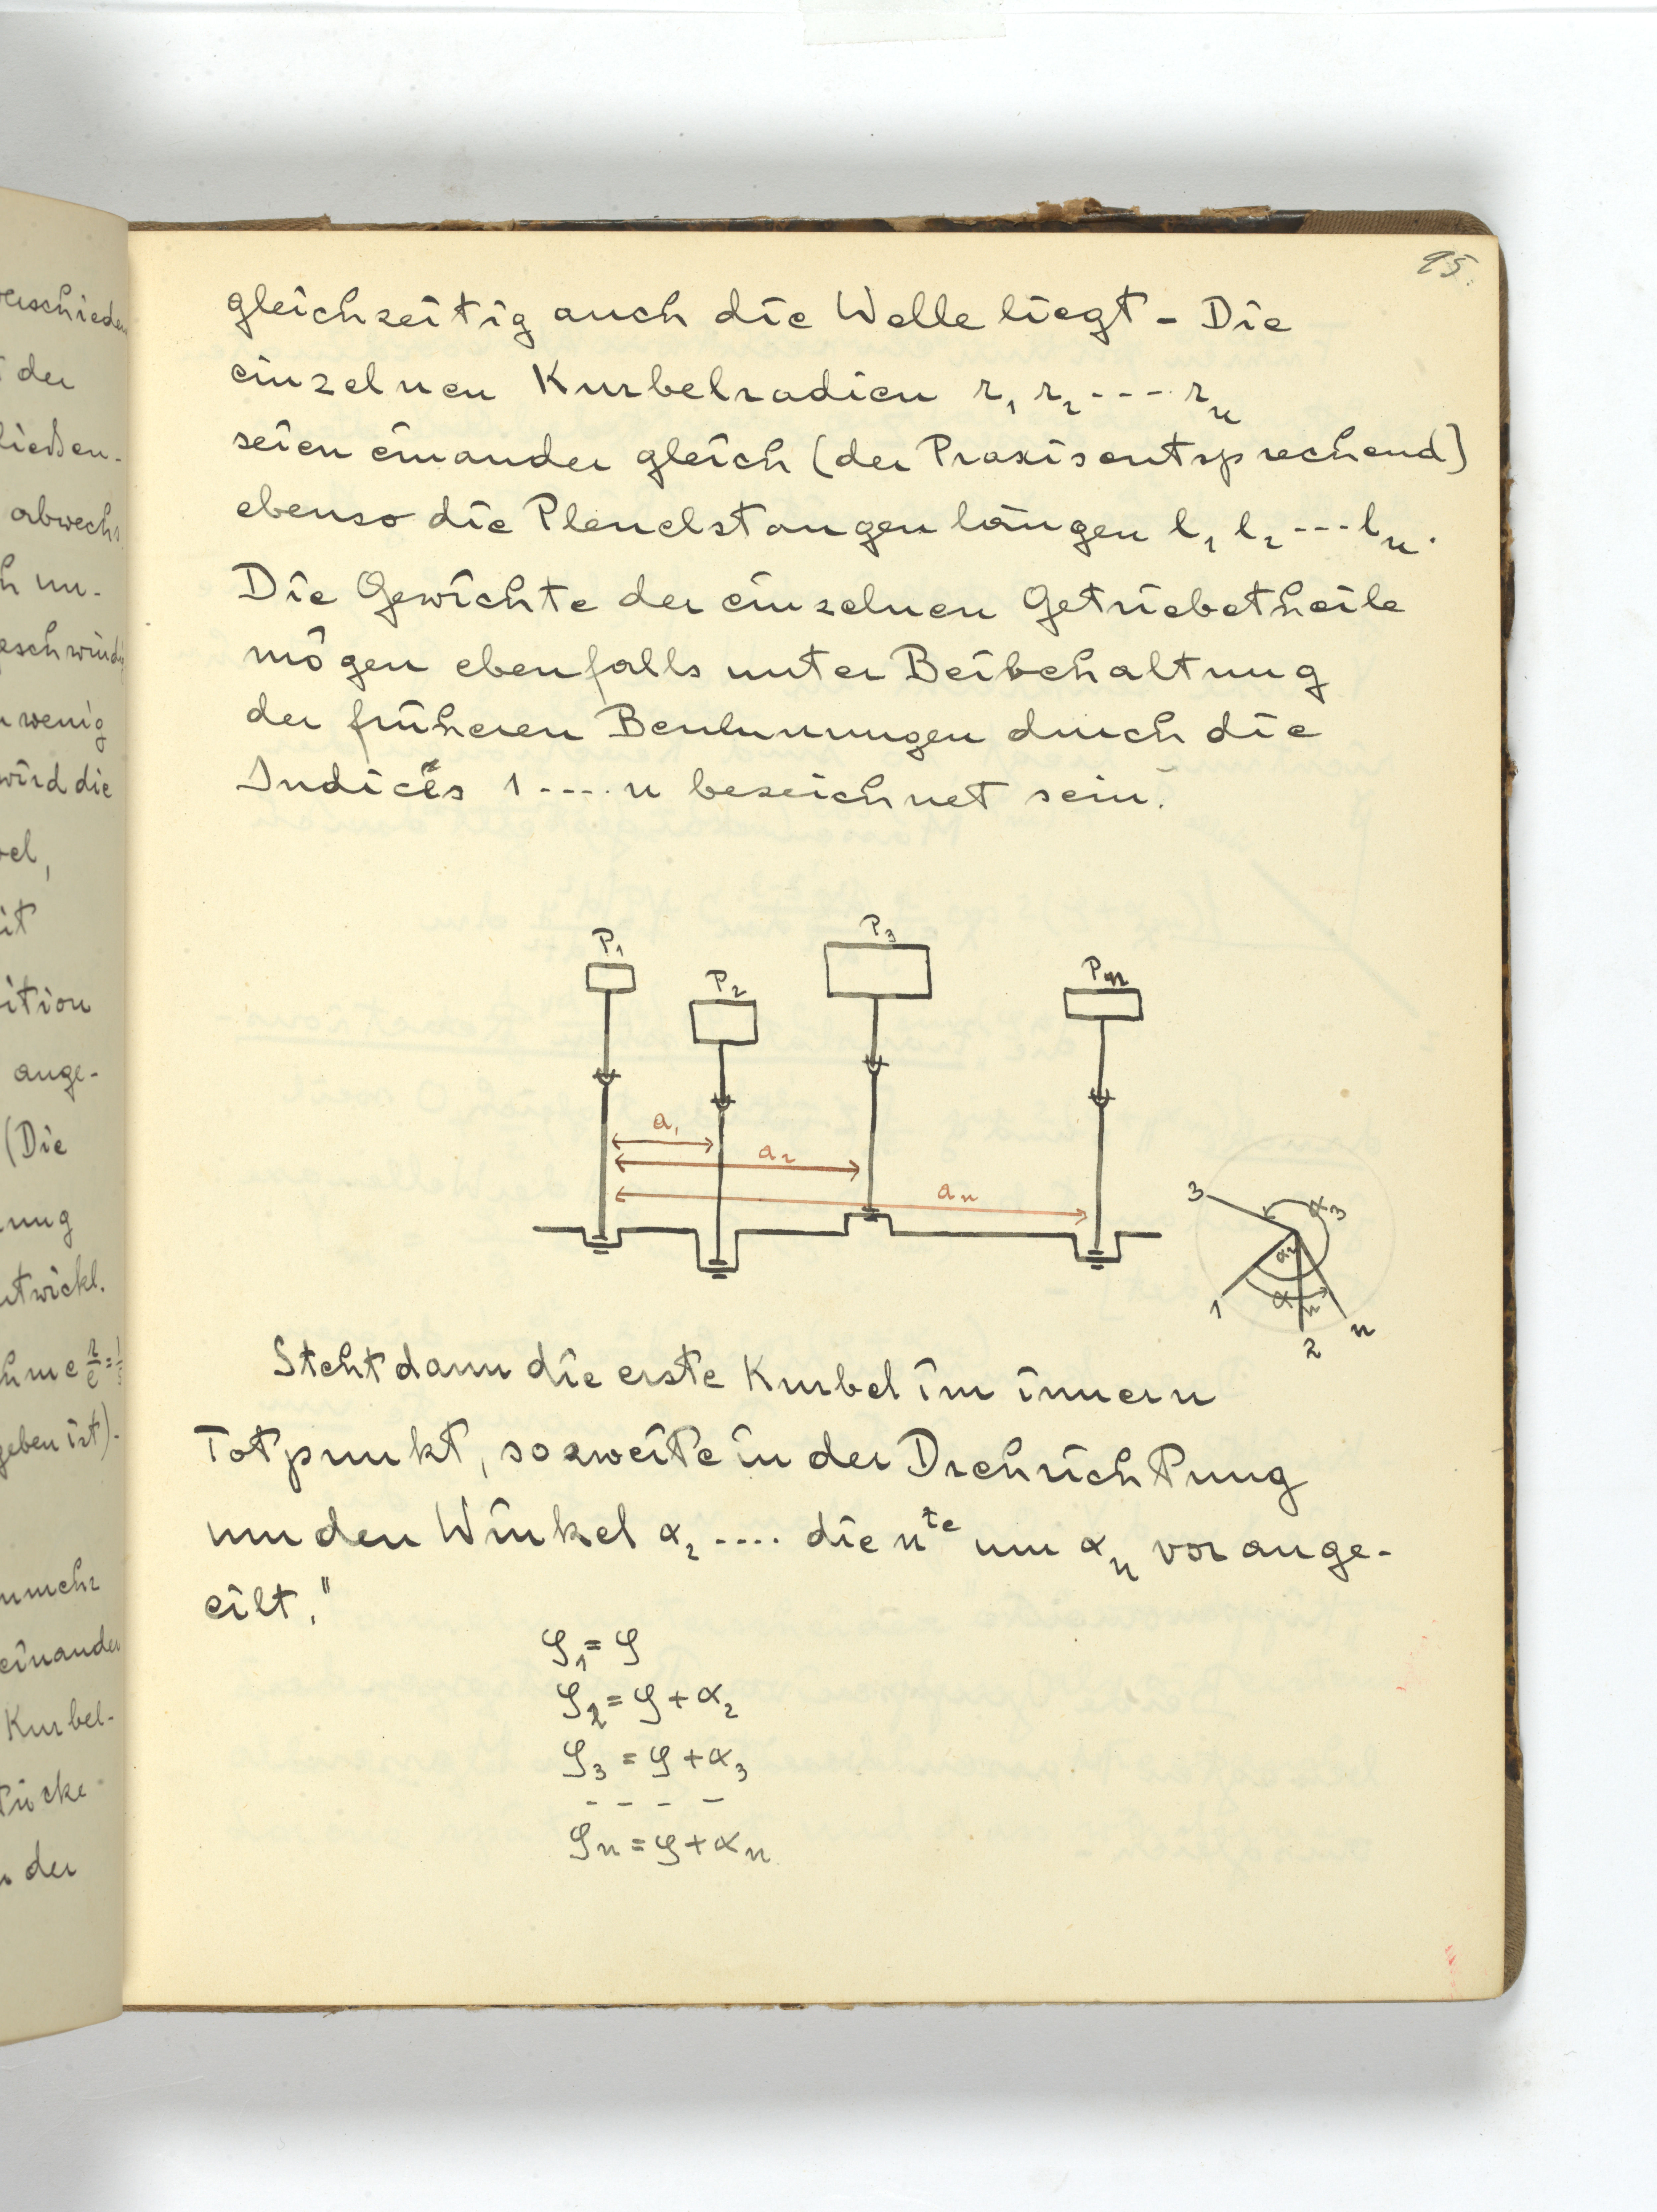 erschieden
der
ließen-
abwechs
h un-
geschwindi
wenig
wird die
el,
it
ition
ange-
(Die
nung
ntwickl.
geben ist)-
nmehr
einander
Kurbel-
tücke
der
95.
gleichzeitig auch die Welle liegt - Die
einzelnen Kurbelradien r₁ r₂ ---- rₙ
seien einander gleich (der Praxis entsprechend)
ebenso die Pleuelstangen längen l₁ l₂ --- lₙ.
Die Gewichte der einzelnen Getriebetheile
mögen ebenfalls unter Beibehaltung
der früheren Benennungen durch die
Indices 1 .... n bezeichnet sein.
P₁ P₂ P₃ Pₙ
a₁
a₂
aₙ
3 α₃
α₂
αₙ
1 2 n
Steht dann die erste Kurbel im innern
Totpunkt, so zweite in der Drehrichtung
um den Winkel α₂ .... die nᵗᵉ um αₙ vorange-
eilt."
φ₁ = φ
φ₂ = φ + α₂
φ₃ = φ + α₃
- - - -
φₙ = φ + αₙ